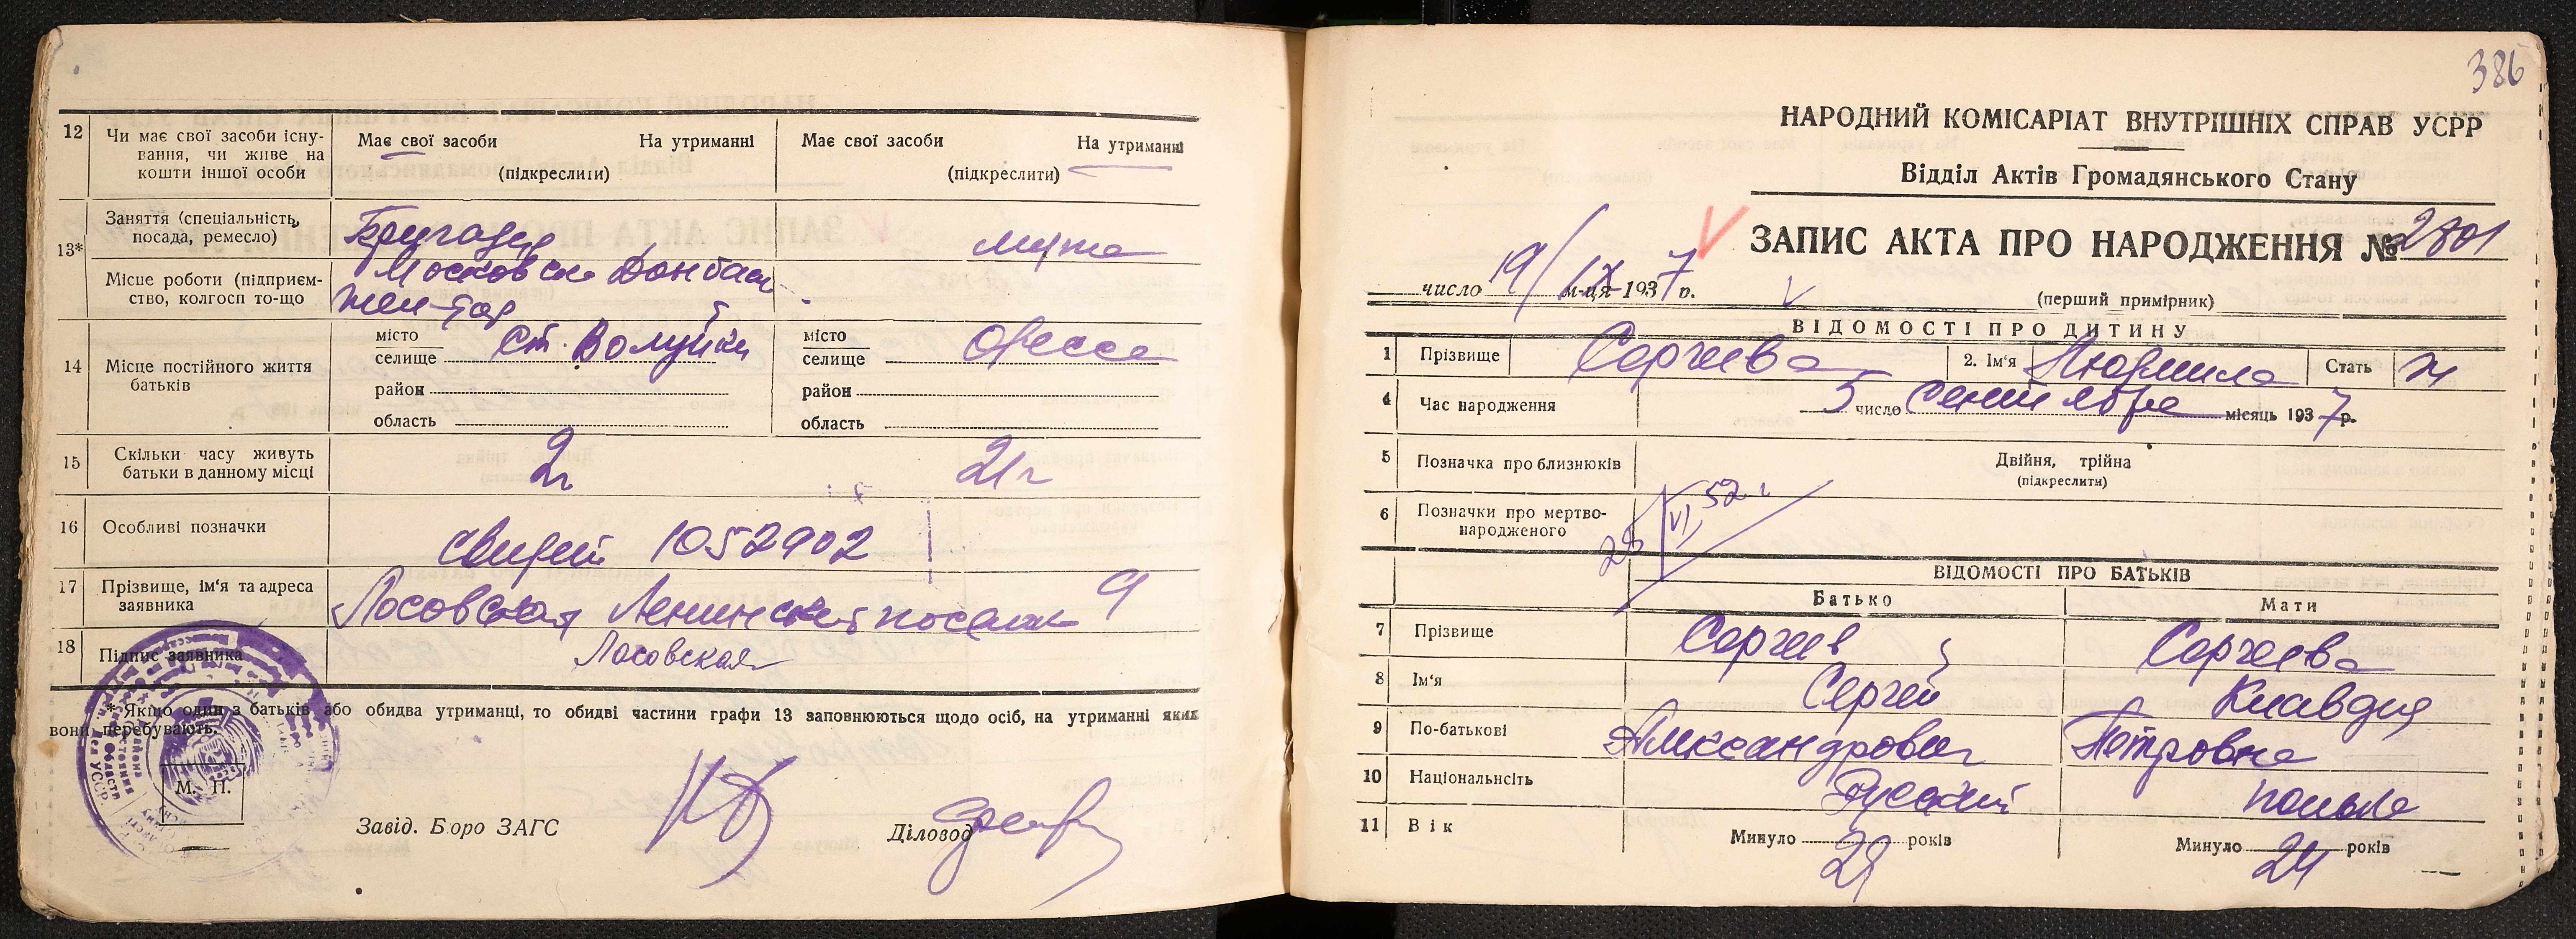 12 Чи має свої засоби існу-
вання, чи живе на
кошти іншої особи
Має свої засоби На утриманні
(підкреслити)
Має свої засоби На утриманні
(підкреслити)
13* Заняття (спеціальність,
посада, ремесло)
Бригадир
мужа
Місце роботи (підприєм-
ство, колгосп то-що
Московско Донбасс
жел-дор
14 Місце постійного життя
батьків
місто
селище ст. Волуйки
район
область
місто
селище Одесса
район
область
15 Скільки часу живуть
батьки в данному місці
2г 21г
16 Особливі позначки
свидет 1052902
17 Прізвище, ім'я та адреса
заявника
Лосовская Ленинский поселок 9
18 Підпис заявника
Лосовская
* Якщо один з батьків або обидва утриманці, то обидві частини графи 13 заповнюються щодо осіб, на утриманні яких
вони перебувають.
М. П.
Завід. Бюро ЗАГС
Діловод
386
НАРОДНИЙ КОМІСАРІАТ ВНУТРІШНІХ СПРАВ УСРР
Відділ Актів Громадянського Стану
ЗАПИС АКТА ПРО НАРОДЖЕННЯ № 2801
число 19/IX м-ця 1937 р.
(перший примірник)
ВІДОМОСТІ ПРО ДИТИНУ
1 Прізвище Сергеева 2. Ім'я Людмила Стать ж
4 Час народження 5 число сентября місяць 1937 р.
5 Позначка про близнюків Двійня, трійна
(підкреслити)
6 Позначки про мертво-
народженого
VI 52 г
ВІДОМОСТІ ПРО БАТЬКІВ
Батько Мати
7 Прізвище Сергеев Сергеева
8 Ім'я Сергей Клавдия
9 По-батькові Александрович Петровна
10 Національнсіть Русский полька
11 Вік Минуло 29 років Минуло 24 років